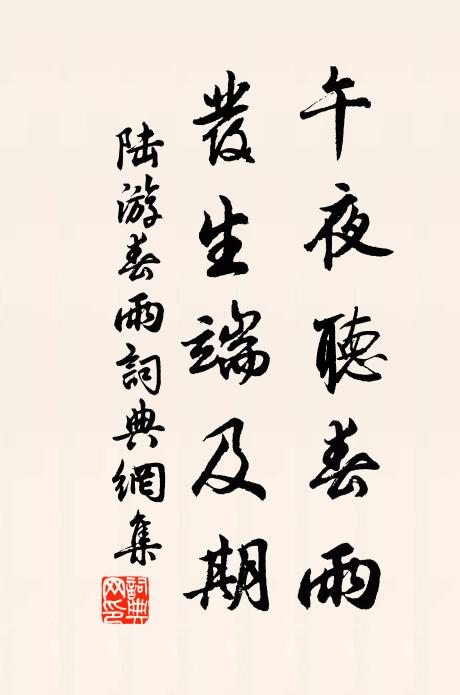 午夜聽春雨
發生端及期
陸游春雨詞典網集
詞典網印